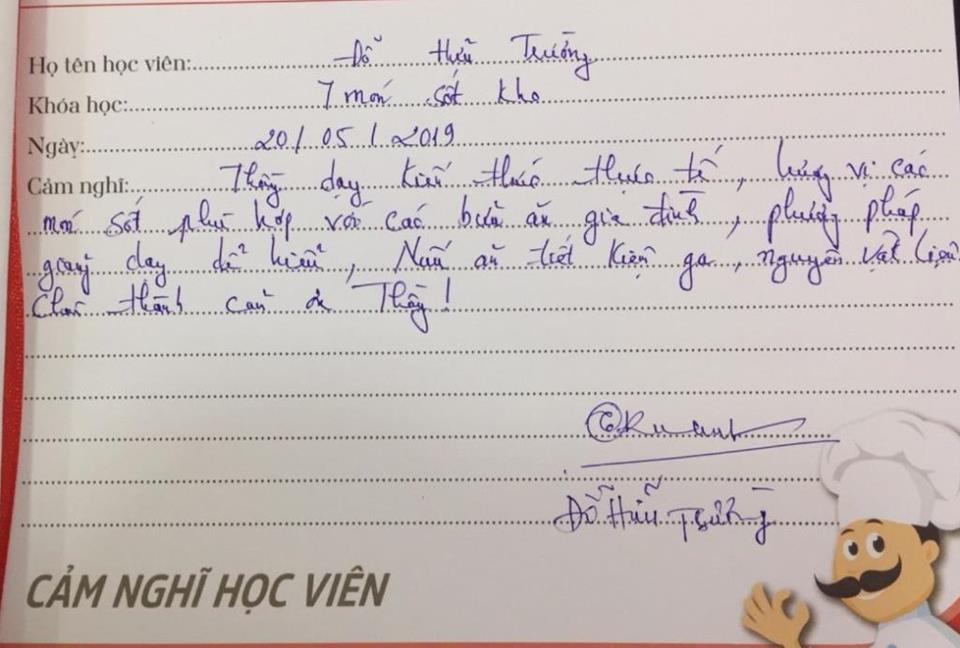 Họ tên học viên: Đỗ Hữu Trường
Khóa học: 7 món sốt kho
Ngày: 20/05/2019
Cảm nghĩ: Thầy dạy kiến thức thực tế, hương vị các
món sốt phù hợp với các bữa ăn gia đình, phương pháp
giảng dạy dễ hiểu, Nấu ăn tiết kiệm ga, nguyên vật liệu.
Chân thành cảm ơn Thầy!
Đỗ Hữu Trường
CẢM NGHĨ HỌC VIÊN